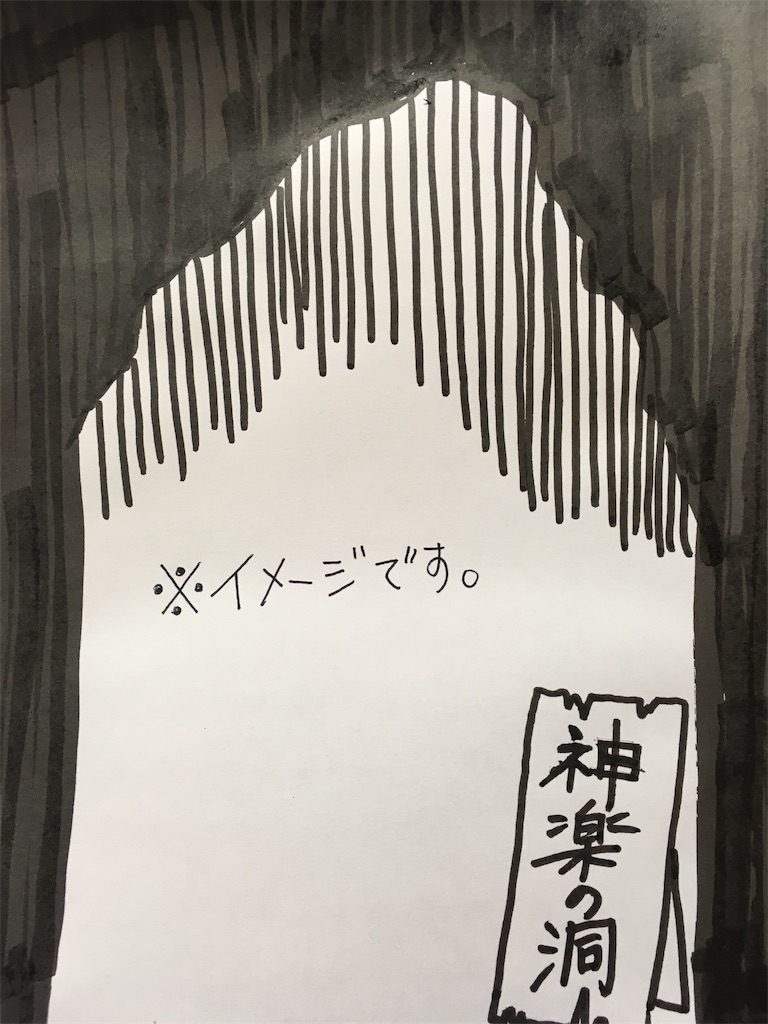 ※イメージです。
神楽の洞